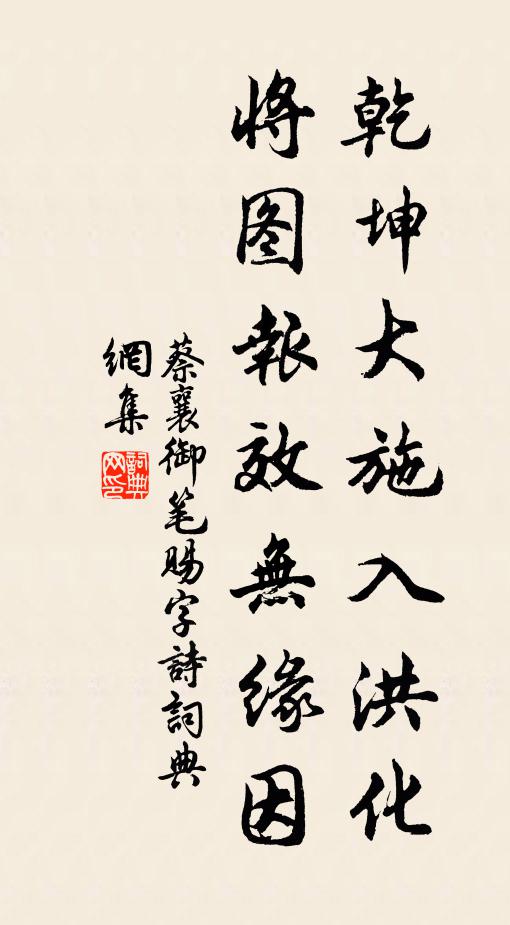 乾坤大施入洪化
將图報效無緣因
蔡襄御笔賜字詩詞典
網集
詞典网印